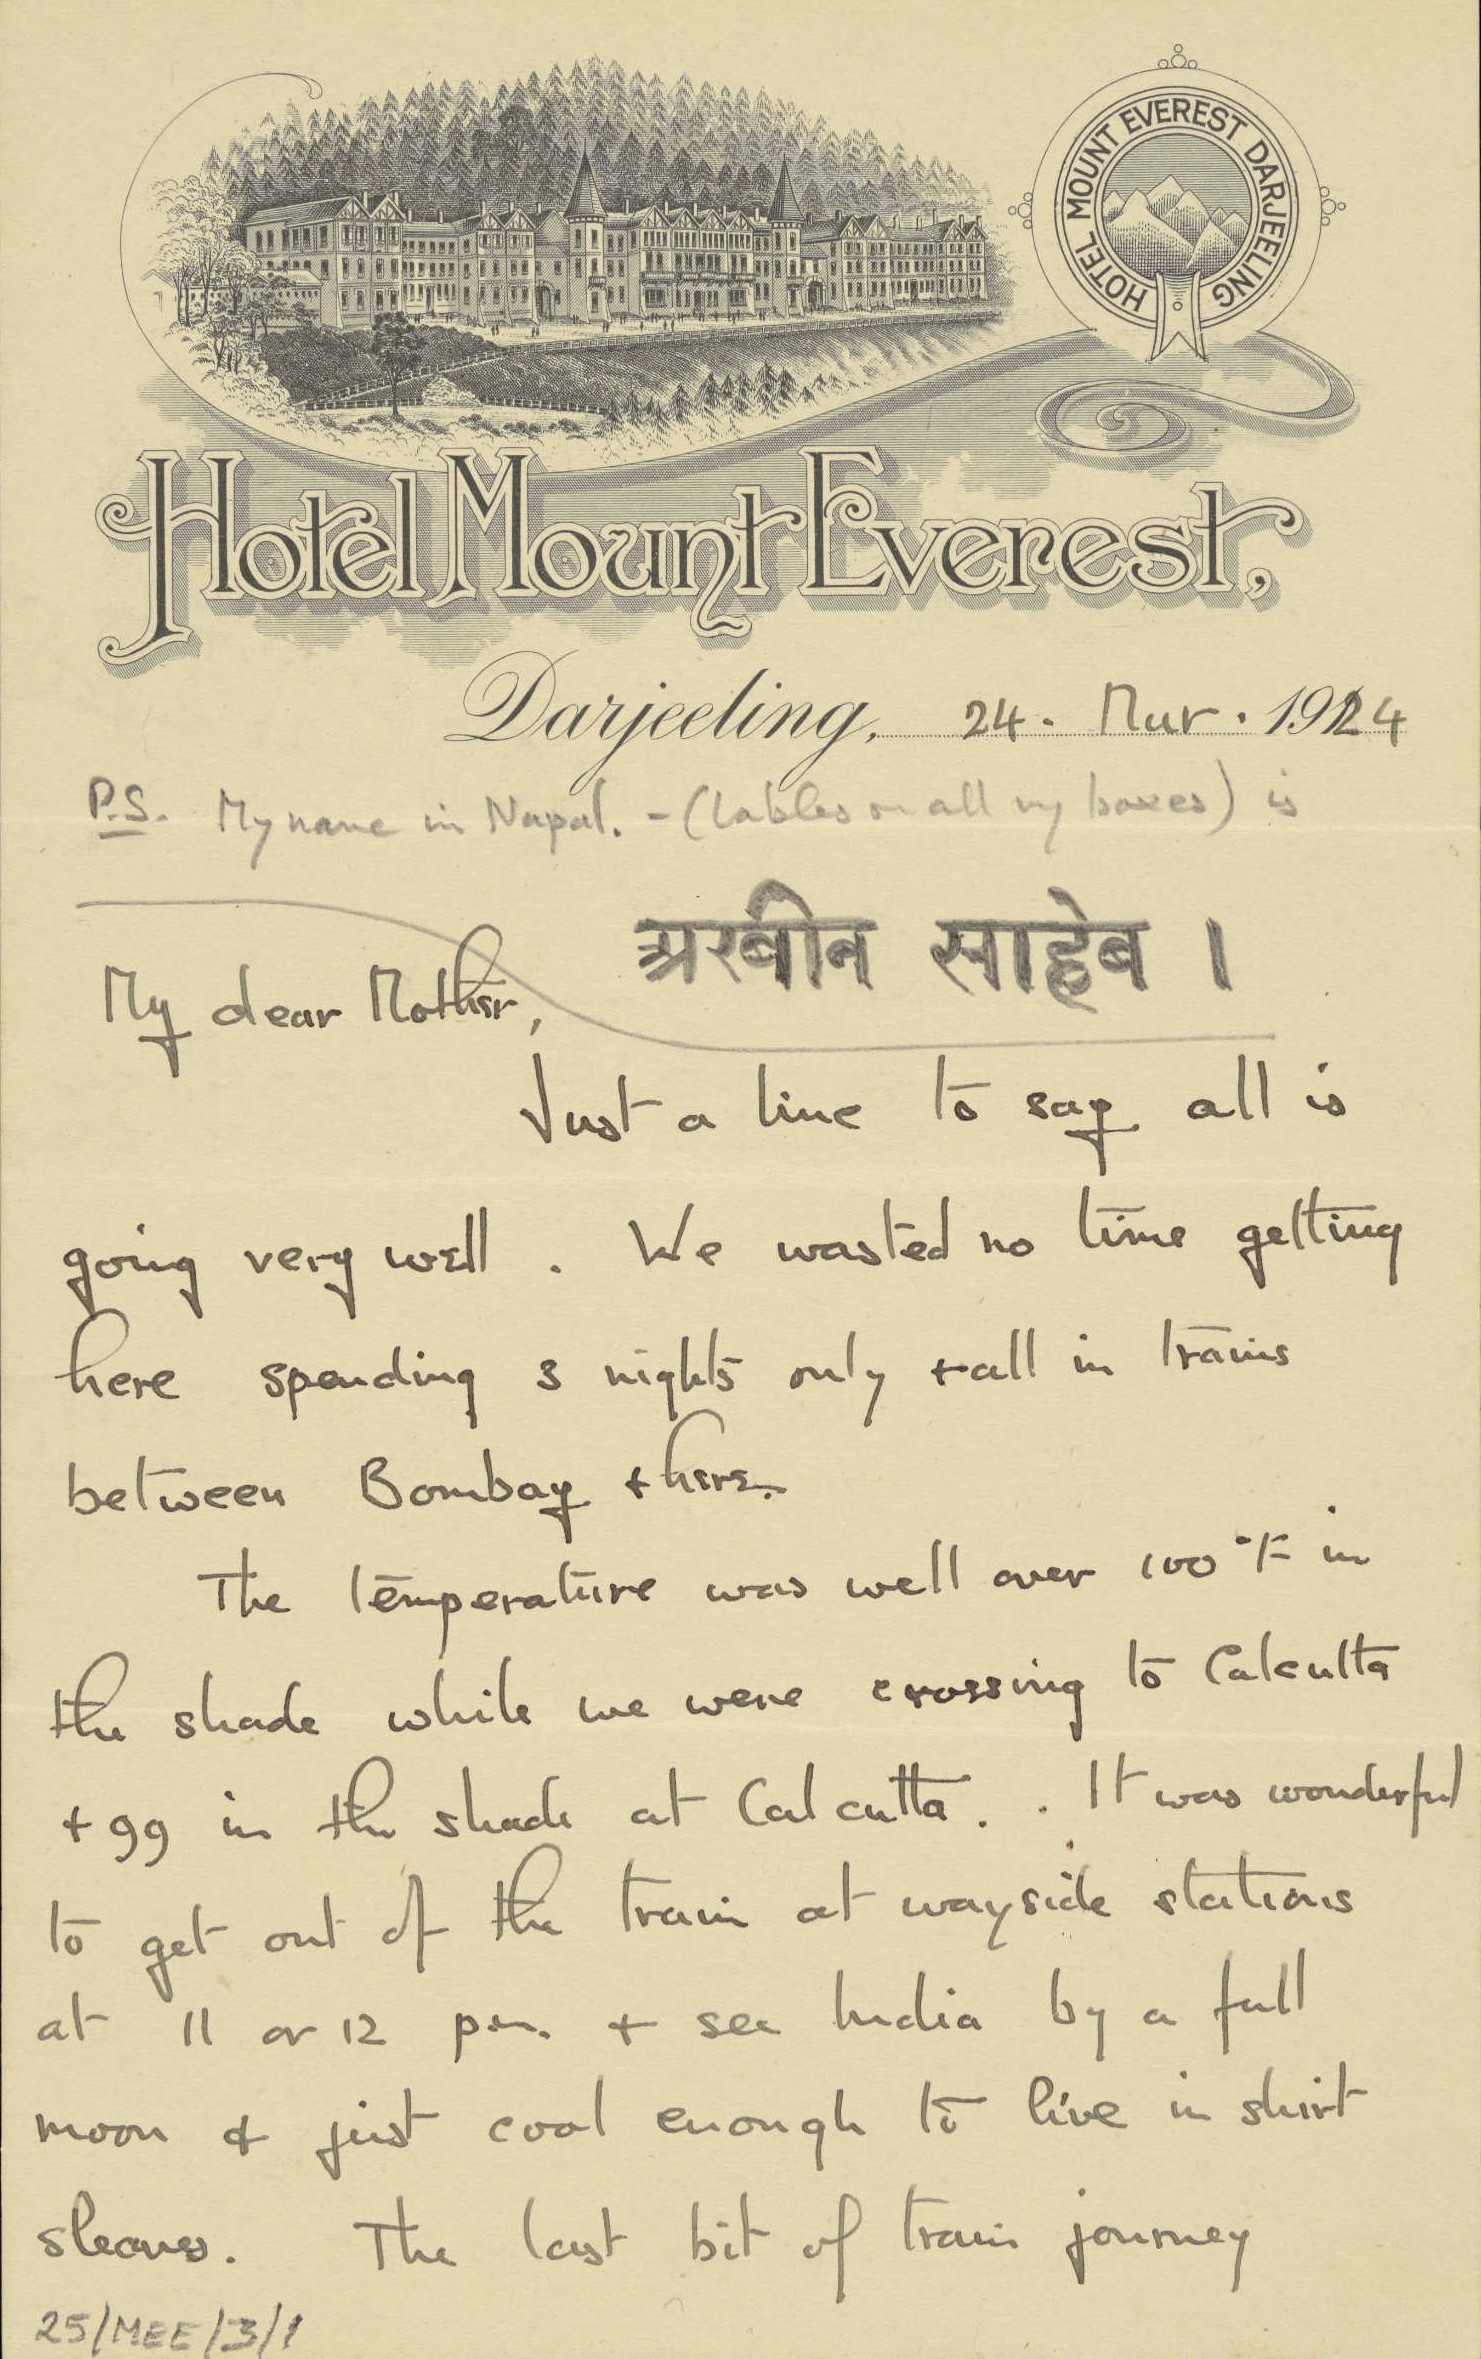 HOTEL MOUNT EVEREST DARJEELING
Hotel Mount Everest,
Darjeeling, 24. Mar. 1924
P.S. My name in Napal. - (lables on all my boxes) is
अरबीन साहेब ।
My dear Mother,
Just a line to say all is
going very well. We wasted no time getting
here spending 3 nights only + all in trains
between Bombay + here.
The temperature was well over 100°F in
the shade while we were crossing to Calcutta
+ 99 in the shade at Calcutta. . It was wonderful
to get out of the train at wayside stations
at 11 or 12 p.m. + see India by a full
moon & just cool enough to live in shirt
sleaves. The last bit of train journey
25/MEE/3/1